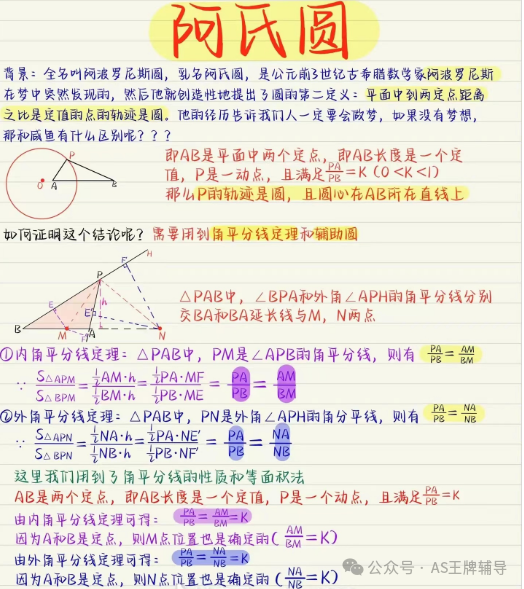 阿氏圆
背景：全名叫阿波罗尼斯圆，乳名阿氏圆，是公元前3世纪古希腊数学家阿波罗尼斯
在梦中突然发现的，然后他就创造性地提出了圆的第二定义：平面中到两定点距离
之比是定值的点的轨迹是圆。他的经历告诉我们人一定要会做梦，如果没有梦想，
那和咸鱼有什么区别呢？？？
P
O A B
即AB是平面中两个定点，即AB长度是一个定
值，P是一动点，且满足PA/PB=K（0<K<1）
那么P的轨迹是圆，且圆心在AB所在直线上
如何证明这个结论呢？需要用到角平分线定理和辅助圆
H
F
P
h
E E
B M A N
△PAB中，∠BPA和外角∠APH的角平分线分别
交BA和BA延长线与M，N两点
①内角平分线定理：△PAB中，PM是∠APB的角平分线，则有 PA/PB=AM/BM
∵ S△APM/S△BPM=½AM·h/½BM·h=½PA·MF/½PB·ME=PA/PB=AM/BM
②外角平分线定理：△PAB中，PN是外角∠APH的角分平线，则有 PA/PB=NA/NB
∵ S△APN/S△BPN=½NA·h/½NB·h=½PA·NE'/½PB·NF'=PA/PB=NA/NB
这里我们用到了角平分线的性质和等面积法
AB是两个定点，即AB长度是一个定值，P是一个动点，且满足PA/PB=K
由内角平分线定理可得：PA/PB=AM/BM=K
因为A和B是定点，则M点位置也是确定的（AM/BM=K）
由外角平分线定理可得：PA/PB=NA/NB=K
因为A和B是定点，则N点位置也是确定的（NA/NB=K）
公众号·AS王牌辅导